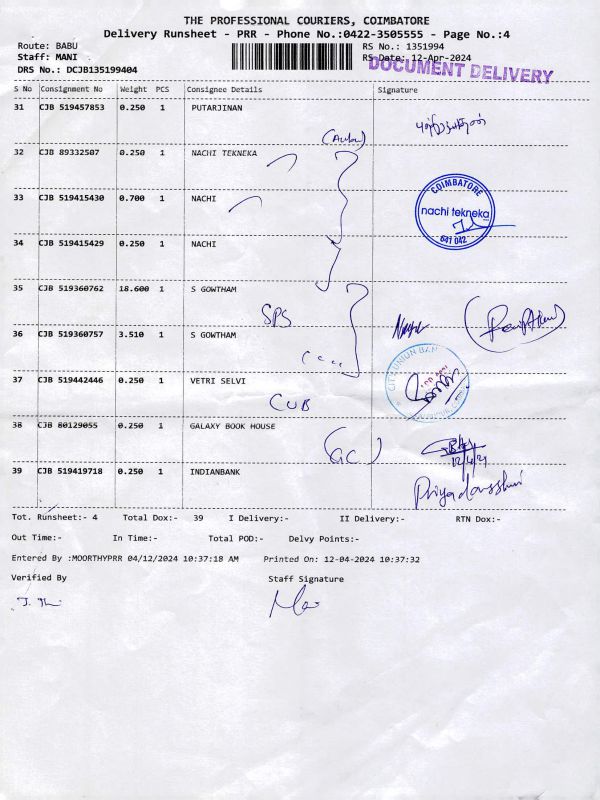 THE PROFESSIONAL COURIERS, COIMBATORE
Delivery Runsheet - PRR - Phone No.:0422-3505555 - Page No.:4
Route: BABU RS No.: 1351994
Staff: MANI RS Date: 12-Apr-2024
DOCUMENT DELIVERY
DRS No.: DCJB135199404
S No Consignment No Weight PCS Consignee Details Signature
31 CJB 519457853 0.250 1 PUTARJINAN
32 CJB 89332507 0.250 1 NACHI TEKNEKA
33 CJB 519415430 0.700 1 NACHI
COIMBATORE
nachi tekneka
641 042
34 CJB 519415429 0.250 1 NACHI
35 CJB 519360762 18.600 1 S GOWTHAM
SPS
36 CJB 519360757 3.510 1 S GOWTHAM
CITY UNION BANK
37 CJB 519442446 0.250 1 VETRI SELVI
CUB
38 CJB 80129055 0.250 1 GALAXY BOOK HOUSE
(GC)
12/4/24
39 CJB 519419718 0.250 1 INDIANBANK
Priyadarsshini
Tot. Runsheet:- 4 Total Dox:- 39 I Delivery:- II Delivery:- RTN Dox:-
Out Time:- In Time:- Total POD:- Delvy Points:-
Entered By :MOORTHYPRR 04/12/2024 10:37:18 AM Printed On: 12-04-2024 10:37:32
Verified By Staff Signature